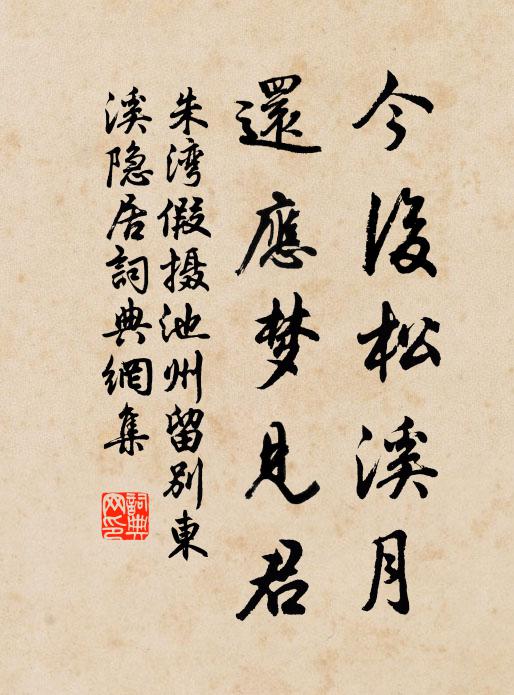 今後松溪月
還應梦見君
朱湾假摄池州留别東
溪隐居詞典網集
詞典网印